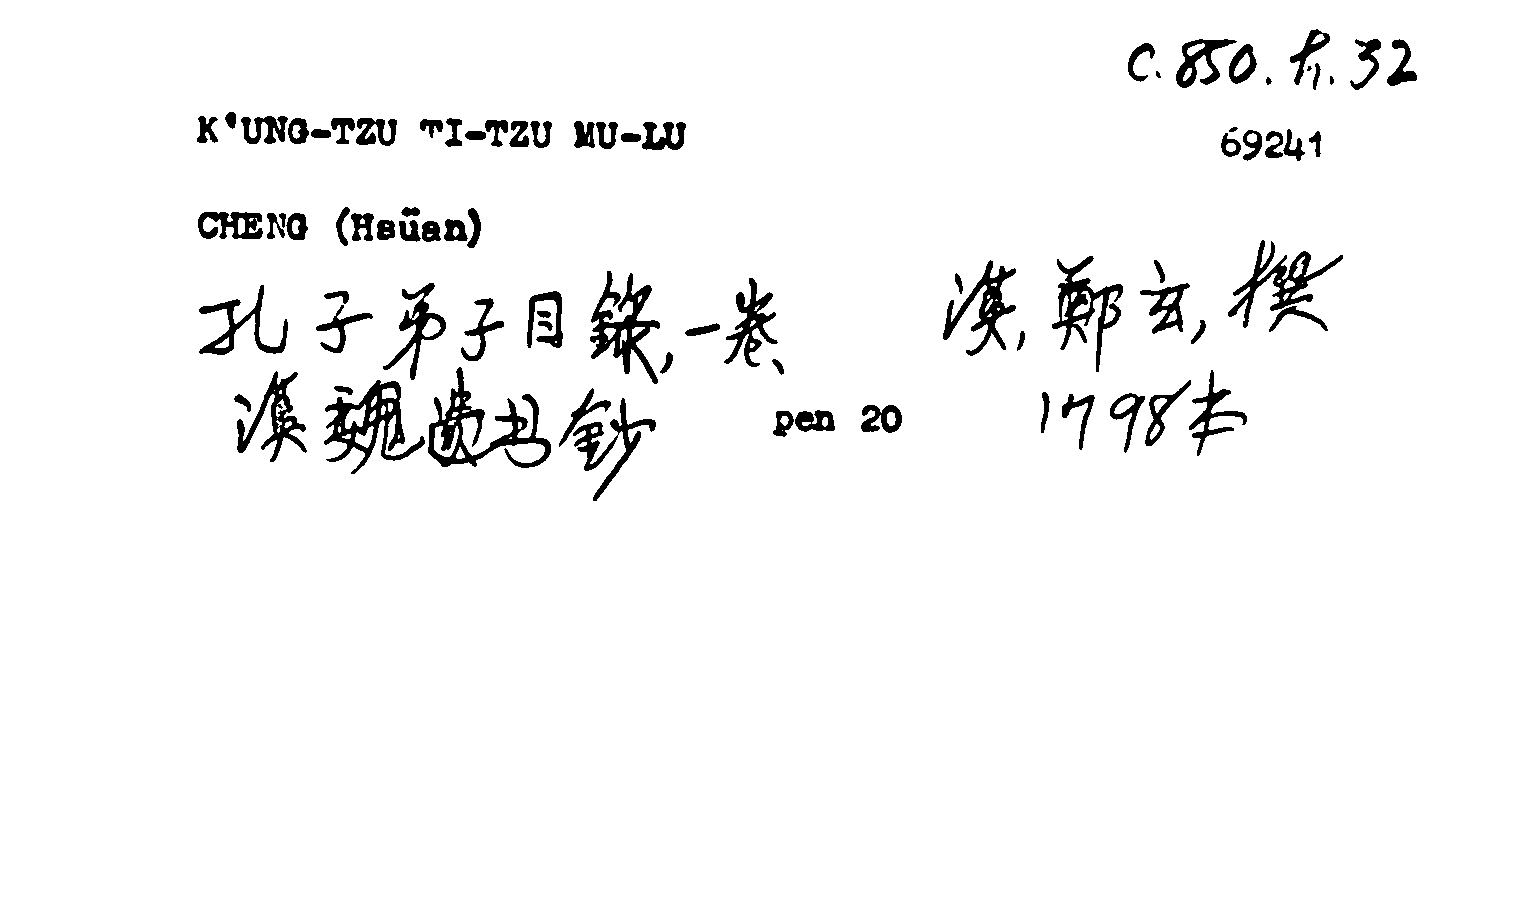 C.850.h.32
K'UNG-TZU TI-TZU MU-LU
69241
CHENG (Hsüan)
孔子弟子目錄,一卷 漢,鄭玄,撰
漢魏遺书鈔 pen 20 1798本